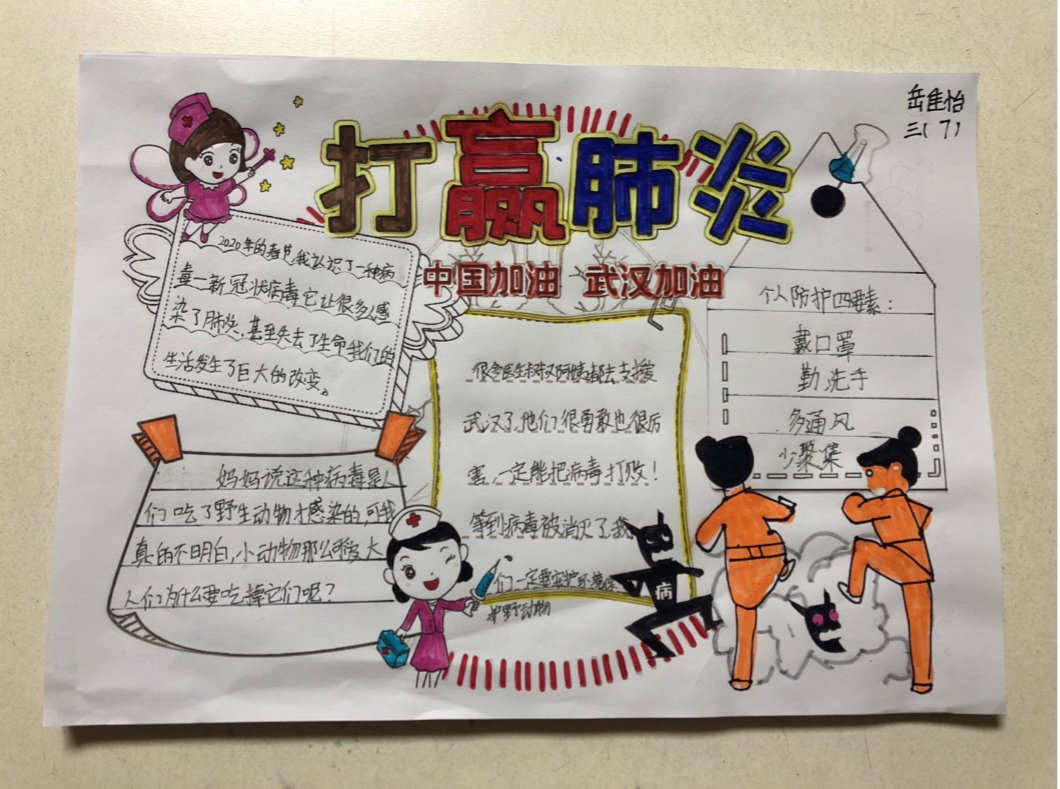 岳佳怡
三(7)
打赢肺炎
中国加油 武汉加油
2020年的春节我认识了一种病
毒一新冠状病毒它让很多人感
染了肺炎,甚至失去了生命我们的
生活发生了巨大的改变。
妈妈说这种病毒是人
们吃了野生动物才感染的,可我
真的不明白,小动物那么可爱大
人们为什么要吃掉它们呢?
很多医生叔叔阿姨都去支援
武汉了,他们很勇敢也很厉
害,一定能把病毒打败!
等到病毒被消灭了我
们一定要保护环境保
护野动物
病
个人防护四要素:
戴口罩
勤洗手
多通风
少聚集